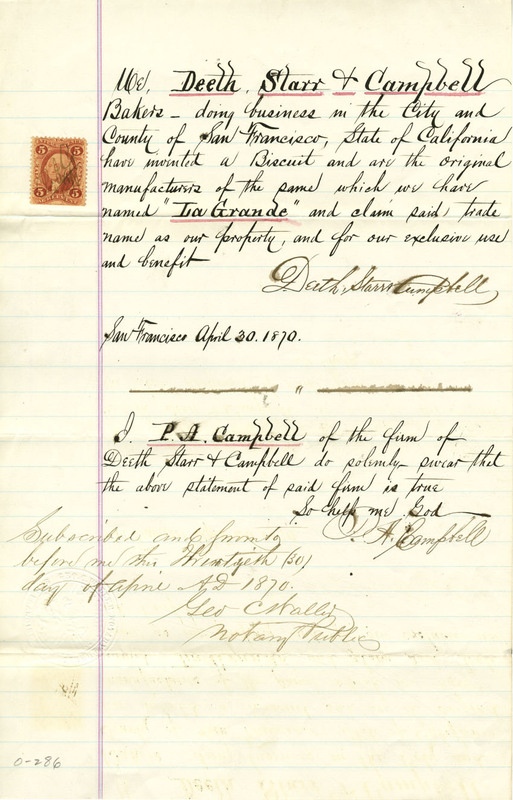 We, Deeth, Starr & Campbell
Bakers - doing business in the City and
County of San Francisco, State of California
have invented a Biscuit and are the original
manufacturers of the same which we have
named "La Grande" and claim said, trade
name as our property, and for our exclusive use
and benefit
Deeth, Starr & Campbell
San Francisco April 30. 1870.
"
I. P. A. Campbell of the firm of
Deeth Starr & Campbell do solemnly swear that
the above statement of said firm is true
So help me God
P. A. Campbell
Subscribed and sworn to
before me this Thirtyeth (30)
day of April A D 1870.
Geo C Wally
Notary Public
5 5
5 5
0-286